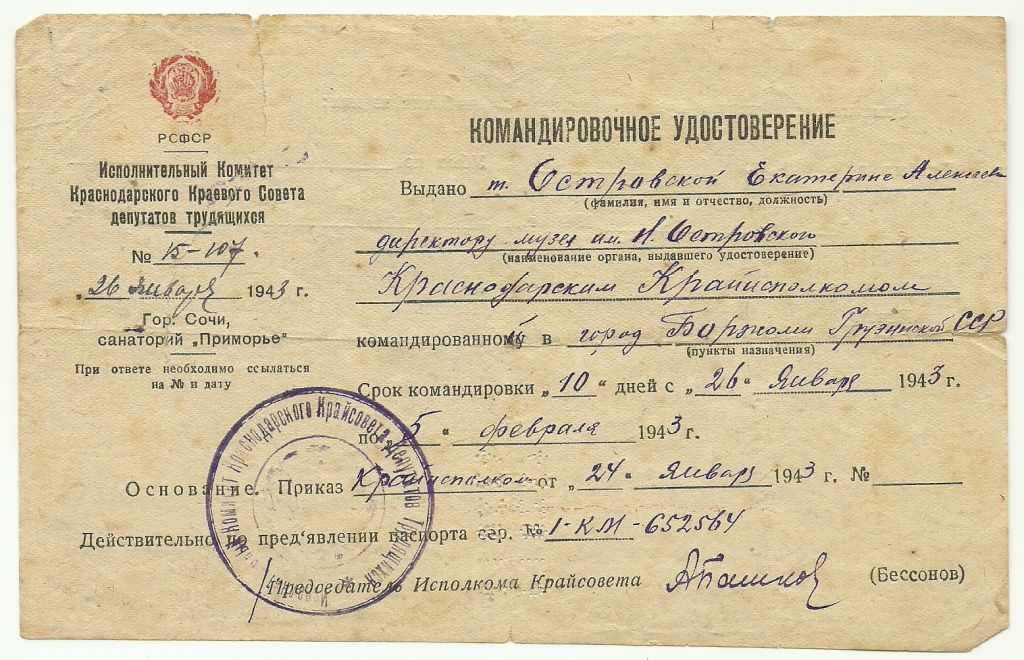 РСФСР
Исполнительный Комитет
Краснодарского Краевого Совета
депутатов трудящихся
№ 15-107.
„26 Января 1943 г.
Гор. Сочи,
санаторий „Приморье"
При ответе необходимо ссылаться
на № и дату
КОМАНДИРОВОЧНОЕ УДОСТОВЕРЕНИЕ
Выдано т. Островской Екатерине Алексеевне
(фамилия, имя и отчество, должность)
директору музея им. Н. Островского
(наименование органа, выдавшего удостоверение)
Краснодарским Крайисполкомом
командированной в город Боржоми Грузинской ССР
(пункты назначения)
Срок командировки „10" дней с „26" Января 1943 г.
по „5" февраля 1943 г.
Основание. Приказ Крайисполком от „24" Января 1943 г. №
Действительно по пред'явлении паспорта сер. № I-КМ-652564
Председатель Исполкома Крайсовета (Бессонов)
Комитет Краснодарского Крайсовета Депутатов Трудящихся